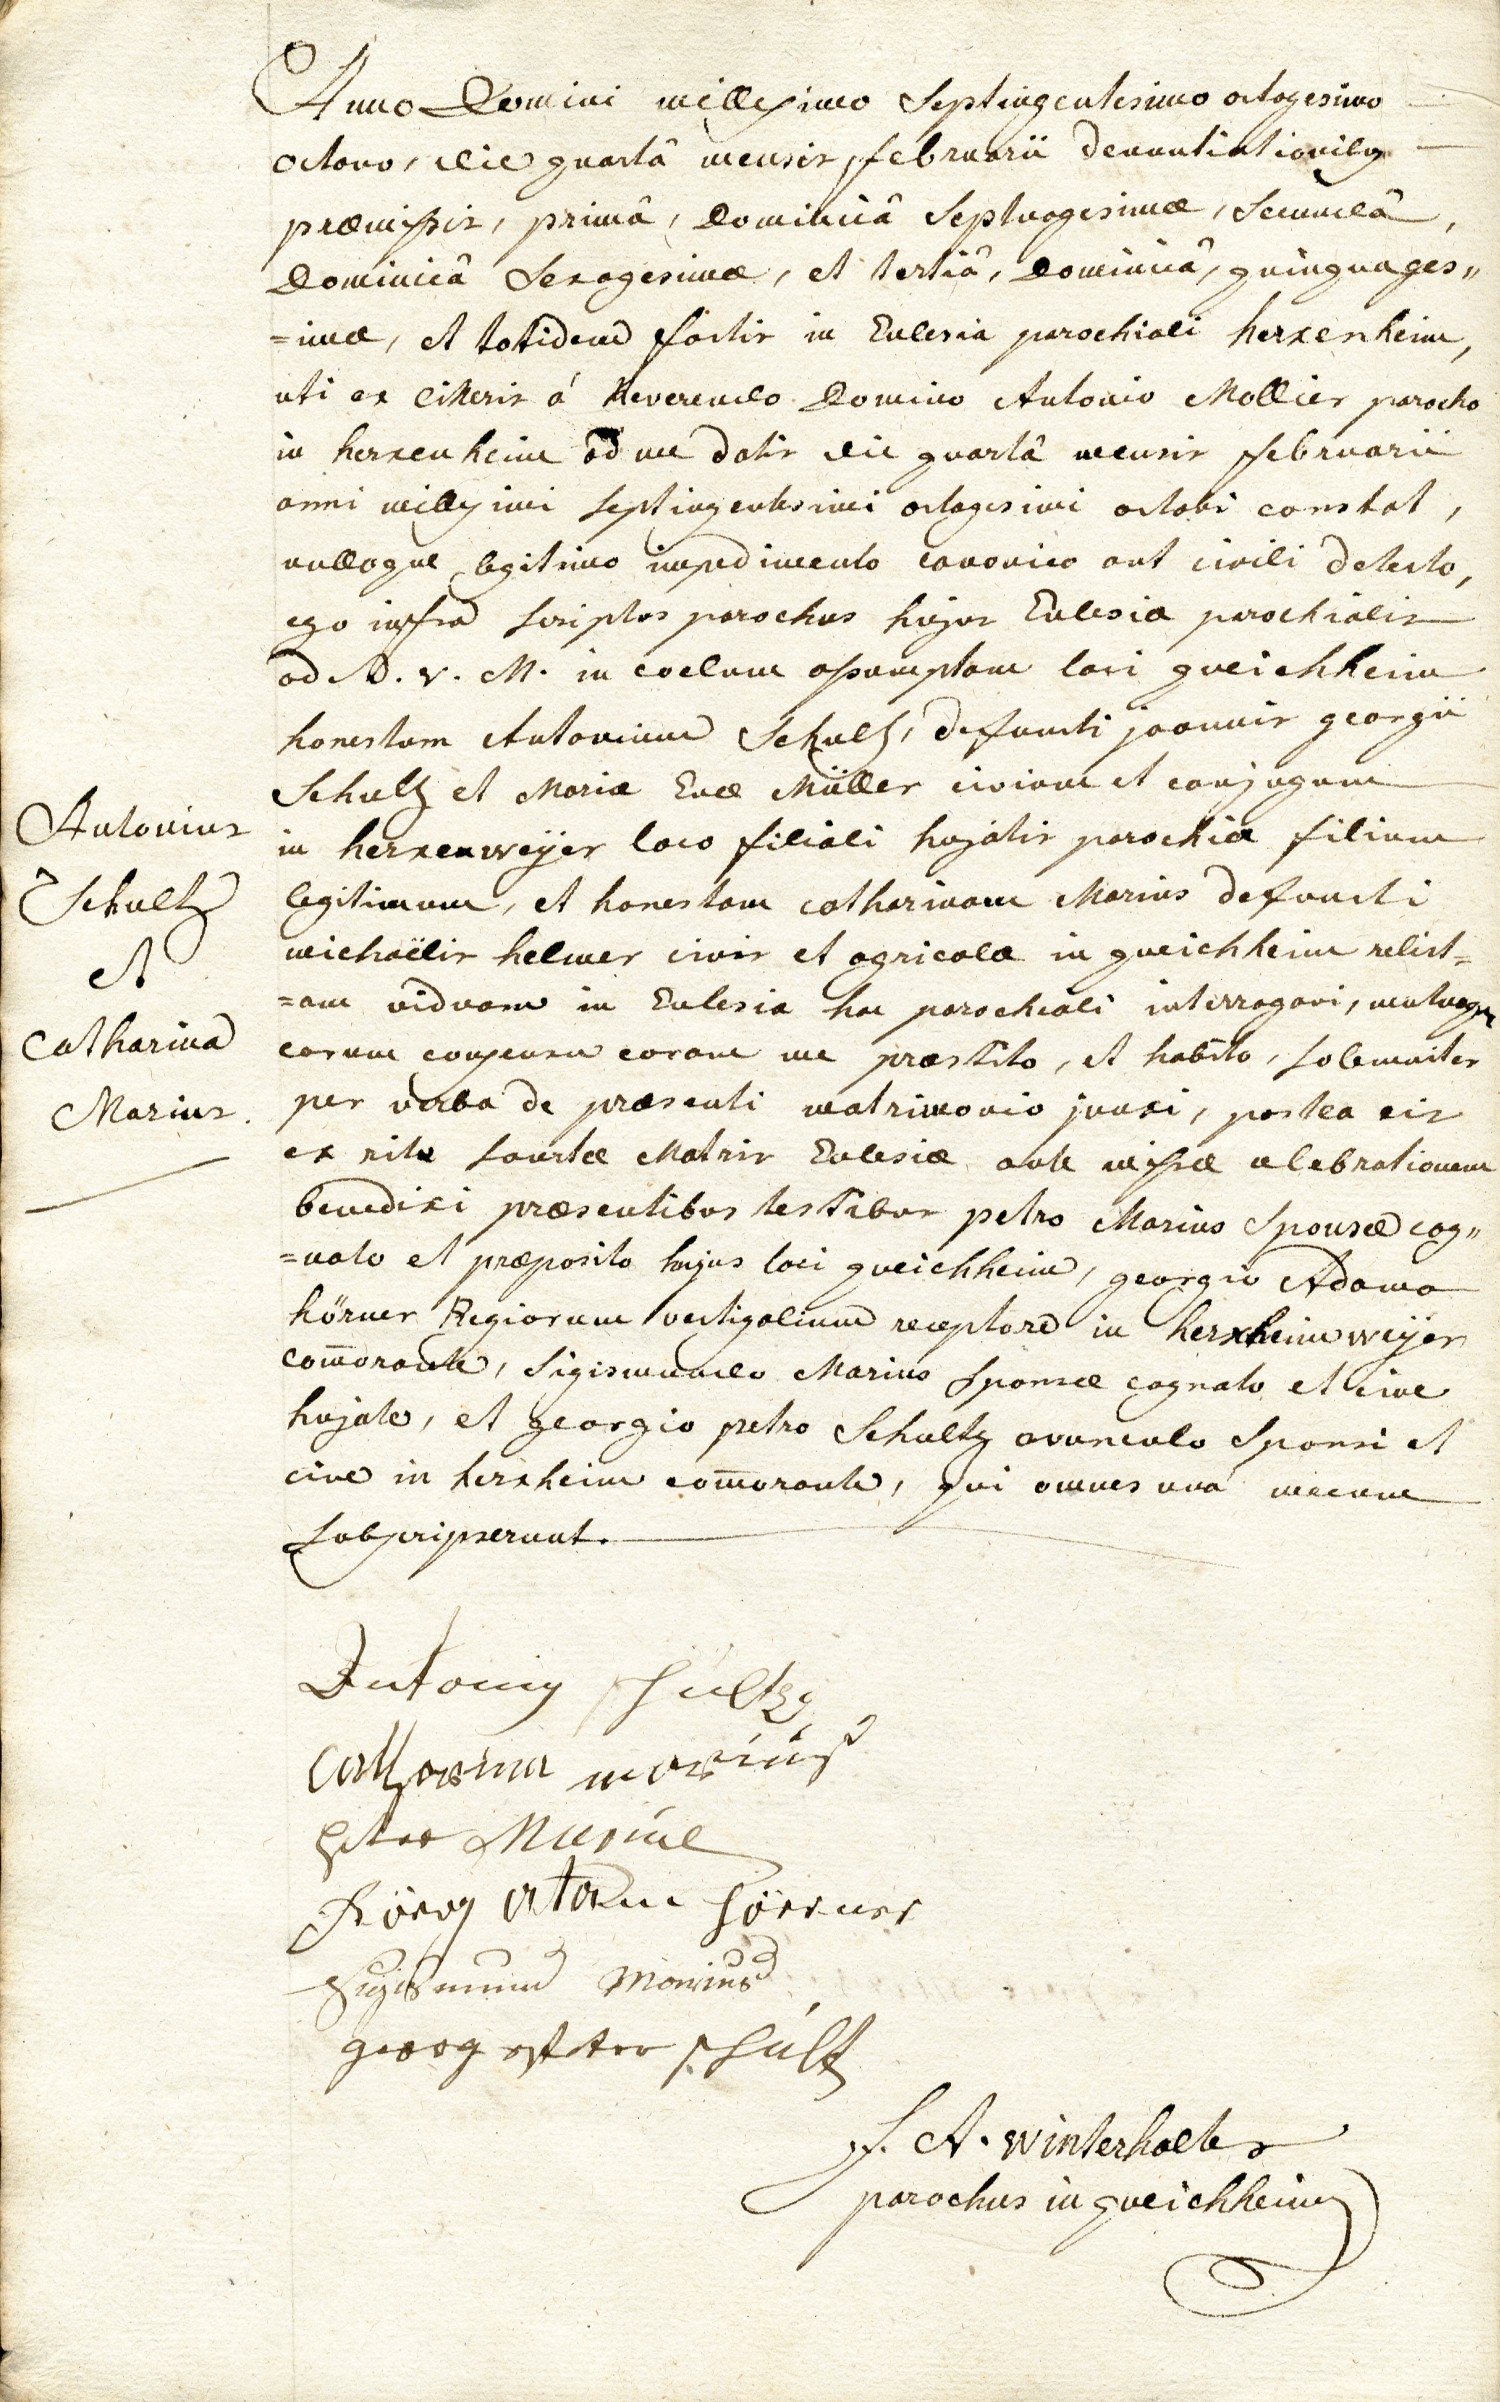 Anno Domini millesimo Septingentesimo octogesimo
octavo, die quartâ mensis februarii denuntiationibus
præmissis, primâ, Dominicâ Septuagesimæ, Secundâ,
Dominicâ Sexagesimæ, et tertiâ, Dominicâ, quinquages„
=imæ, et totidem factis in Ecclesia parochiali herxenheim,
uti ex litteris á Reverendo Domino Antonio Mollier parocho
in herxenheim ad me datis die quartâ mensis februarii
anni millesimi septingentesimi octogesimi octavi constat,
nulloque legitimo impedimento canonico aut civili detecto,
ego infra scriptus parochus hujus Ecclesiæ parochialis
ad B. v. M. in coelum assumptam loci queichheim
honestum Antonium Schultz, defuncti joannis georgii
Schultz et Mariæ Evæ Müller civium et conjugum
in herxenweÿer loco filiali hujatis parochiæ filium
Antonius
Schultz
et
Catharina
Marius.
legitimum, et honestam catharinam Marius defuncti
michaëlis helmer civis et agricolæ in queichheim relict=
=am viduam in Ecclesia hac parochiali interrogavi, mutuoque
eorum consensu coram me præstito, et habito, solemniter
per verba de præsenti matrimonio junxi, postea eis
ex ritu sanctæ Matris Ecclesiæ ante missæ celebrationem
benedixi præsentibus testibus petro Marius Sponsæ cog„
=nato et præposito hujus loci queichheim, georgio Adamo
hörner Regiorum vectigalium receptore in herxheimweÿer
com̄orante, Sigismundo Marius sponsæ cognato et cive
hujate, et georgio petro Schultz avunculo Sponsi et
cive in herxheim com̄orante, qui omnes unà mecum
subscripserunt.
Antonius schultz
Catharina marius
peter Marius
Görg atam hörner
Sigismund Marius
georg petter schultz
f. A. Winterhalter
parochus in queichheim